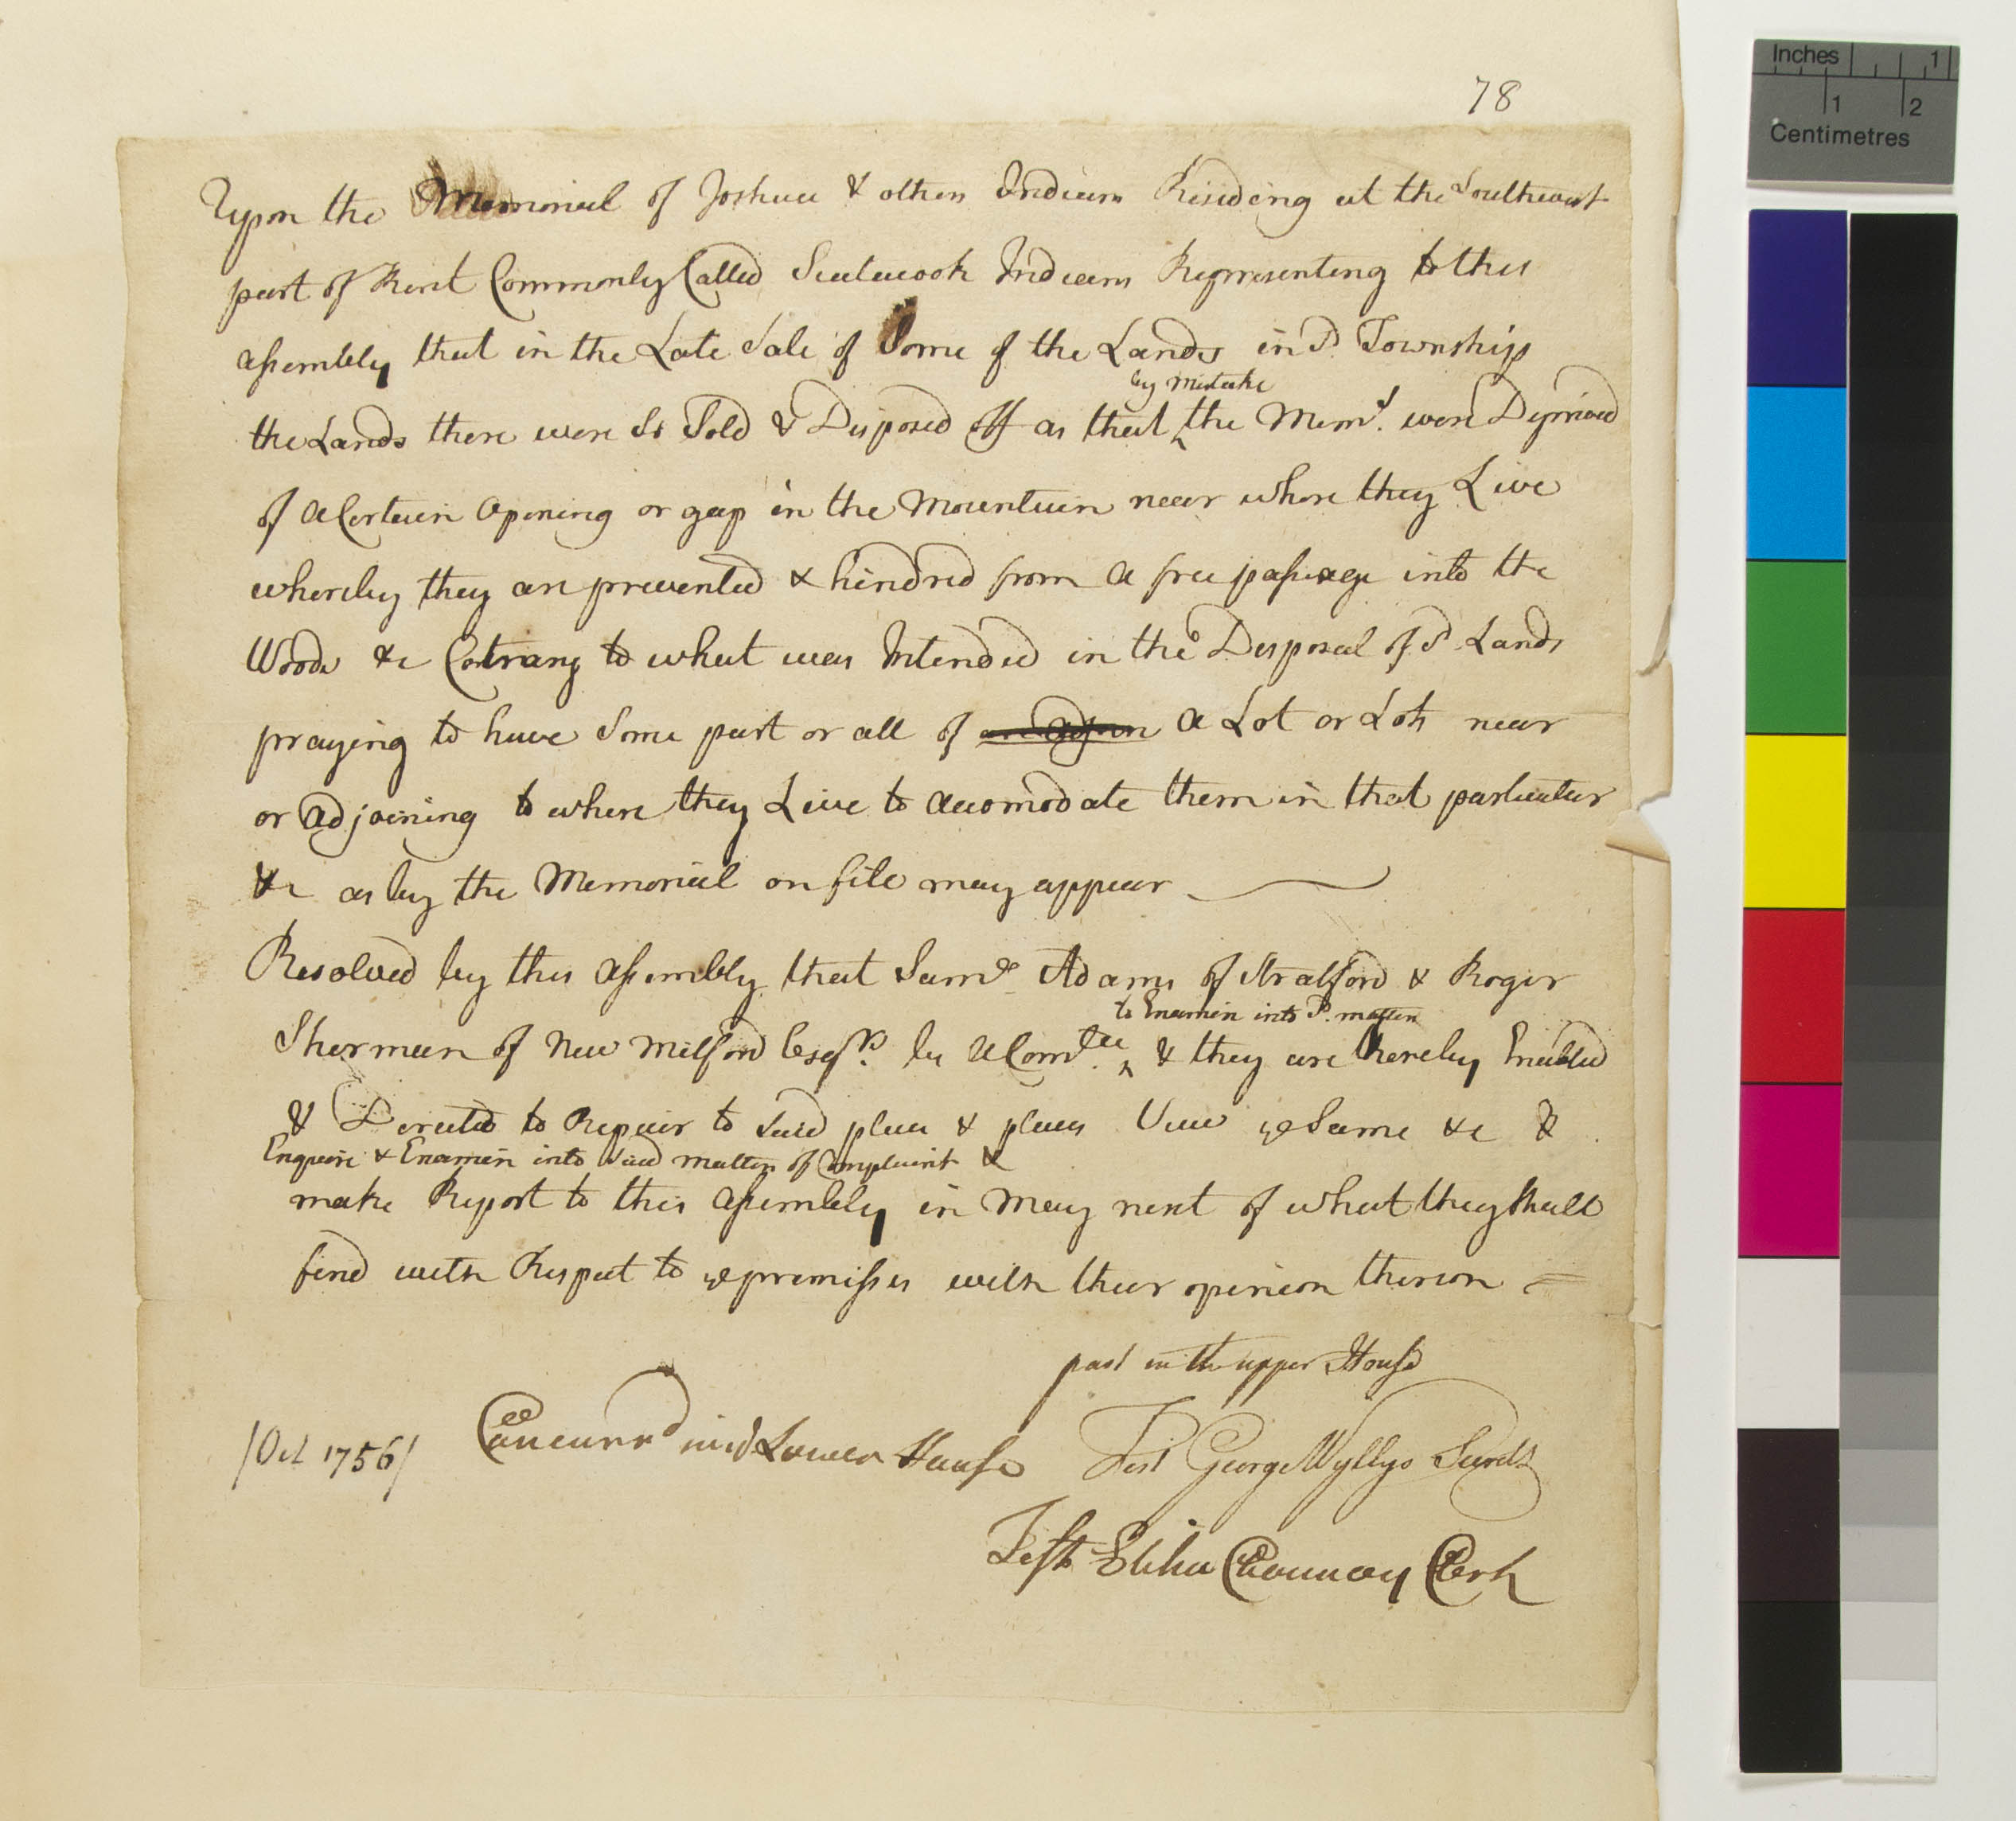 78
Upon the Memorial of Joshua & others Indians Residing at the Southwest
part of Kent Commonly Called Scatacook Indians Representing to this
assembly that in the Late Sale of Some of the Lands in sd. Township
by mistake
the Lands there were so Sold & Disposed off as that ^ the Memts. were Deprived
of a Certain Opening or gap in the Mountain near where they Live
whereby they are prevented & hindred from a free passage into the
Woods &c Contrary to what was Intended in the Disposal of sd Lands
praying to have Some part or all of a Lot or Lots near
or adjoining to where they Live to accomodate them in that particular
&c as by the Memorial on file may appear
Resolved by this assembly that Samll Adams of Stratford & Roger
to Examin into sd. matter
Sherman of New Milford Esqrs. be a Comtee. ^ & they are hereby Enabled
& Directed to Repair to said place & places View ye Same &c &
Enquire & Examin into said matter of Complaint &
make Report to this assembly in May next of what they shall
find with Respect to ye premisses with their opinion thereon
past in the upper House
/Oct 1756/ Concurrd in ye Lower House Test George Wyllys Secrety
Test Elihu Chauncey Clerk
Inches 1
1 2
Centimetres